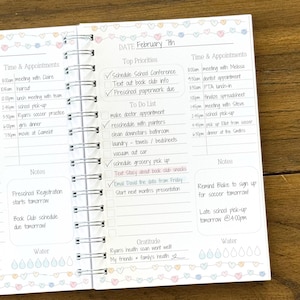 Time & Appointments
meeting with Clients
haircut
lunch meeting with team
school pick-up
Ryan's soccer practice
girls dinner
movie at Carmen's
Notes
Preschool Registration
starts tomorrow!
Book Club schedule
due tomorrow!
Water
DATE: February 8th
Top Priorities
Schedule School Conference
Text out book club invite
Preschool paperwork due
To Do List
make doctor appointment
reschedule with painters
clean downstairs bathroom
laundry - towels / bedsheets
vacuum out car
schedule grocery pick up
Text Stacy about book club snacks
Email Travel the date from Friday
Start next month's presentation
Gratitude
Ryan's health scan went well!
My friends + family's health
Time & Appointments
meeting with Melissa
doctor appointment
PTA lunch-in
finalize spreadsheet
meeting with Steve
school pick-up
pick up Elliot from soccer
dinner at the Smiths
Notes
Remind Blake to sign up
for soccer tomorrow!
Late school pick-up
tomorrow @4:00pm
Water